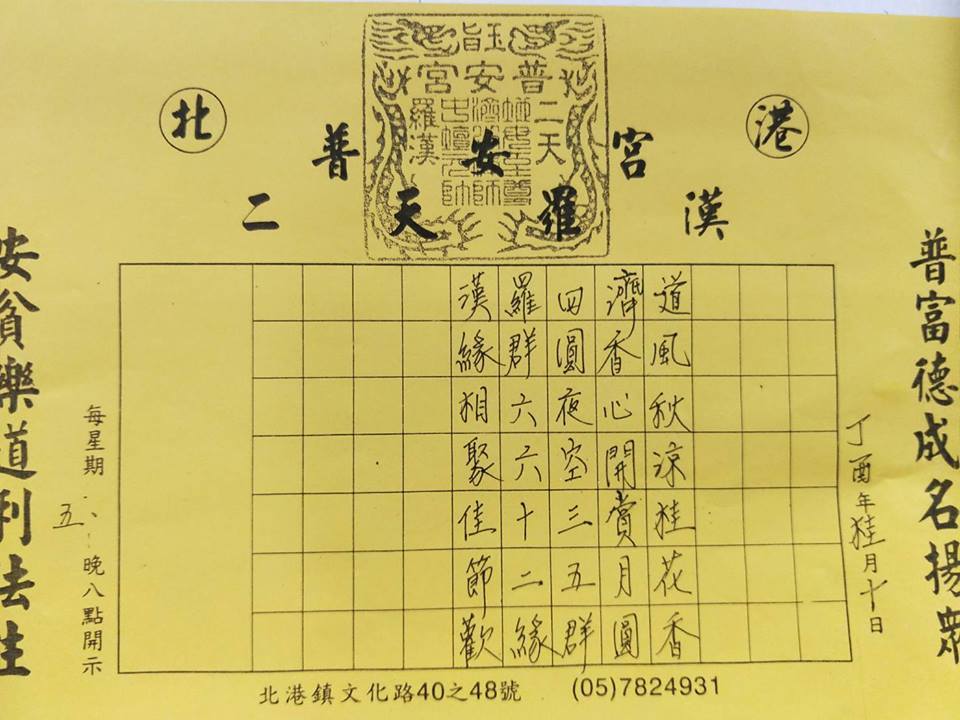 北 港
普安宮
二天羅漢
玉旨
普安宮
二天
羅漢
普富德成名揚眾
丁酉年桂月十日
道風秋涼桂花香
濟香心開賞月圓
四圓夜空三五群
羅群六六十二緣
漢緣相聚佳節歡
每星期五晚八點開示
安貧樂道利法生
北港鎮文化路40之48號 (05)7824931